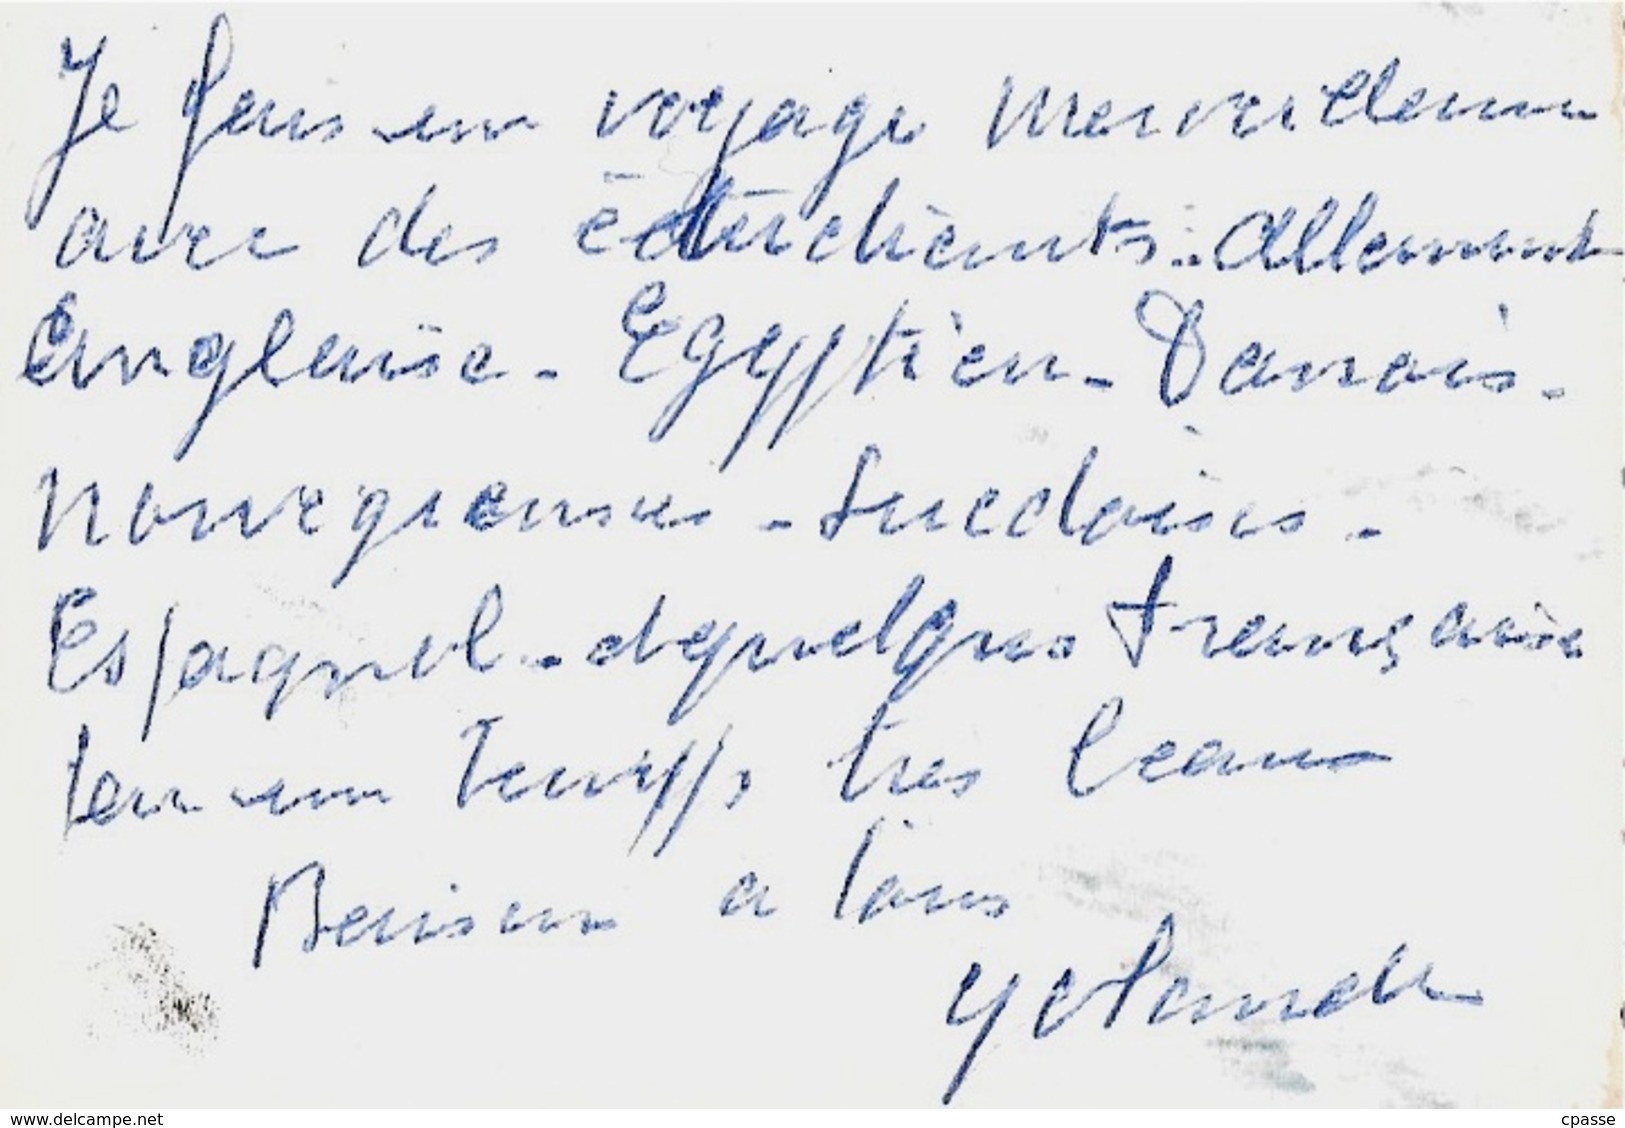 Je fais un voyage merveilleux
avec des étudients. Allemant
Anglaise - Egyptien - Danois -
norvegienses - Suedoises -
Espagnol - et quelques Française
par un Temps tres beau
Baisers a tous
Yolande
www.delcampe.net
cpasse